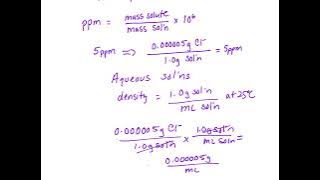 ppm = mass solute / mass sol'n × 10⁶
5ppm ⇒ 0.000005g Cl⁻ / 1.0g sol'n = 5ppm
Aqueous sol'ns
density = 1.0g sol'n / mL sol'n at 25°C
0.000005g Cl⁻ / 1.0g sol'n × 1.0g sol'n / mL sol'n =
0.000005g / mL